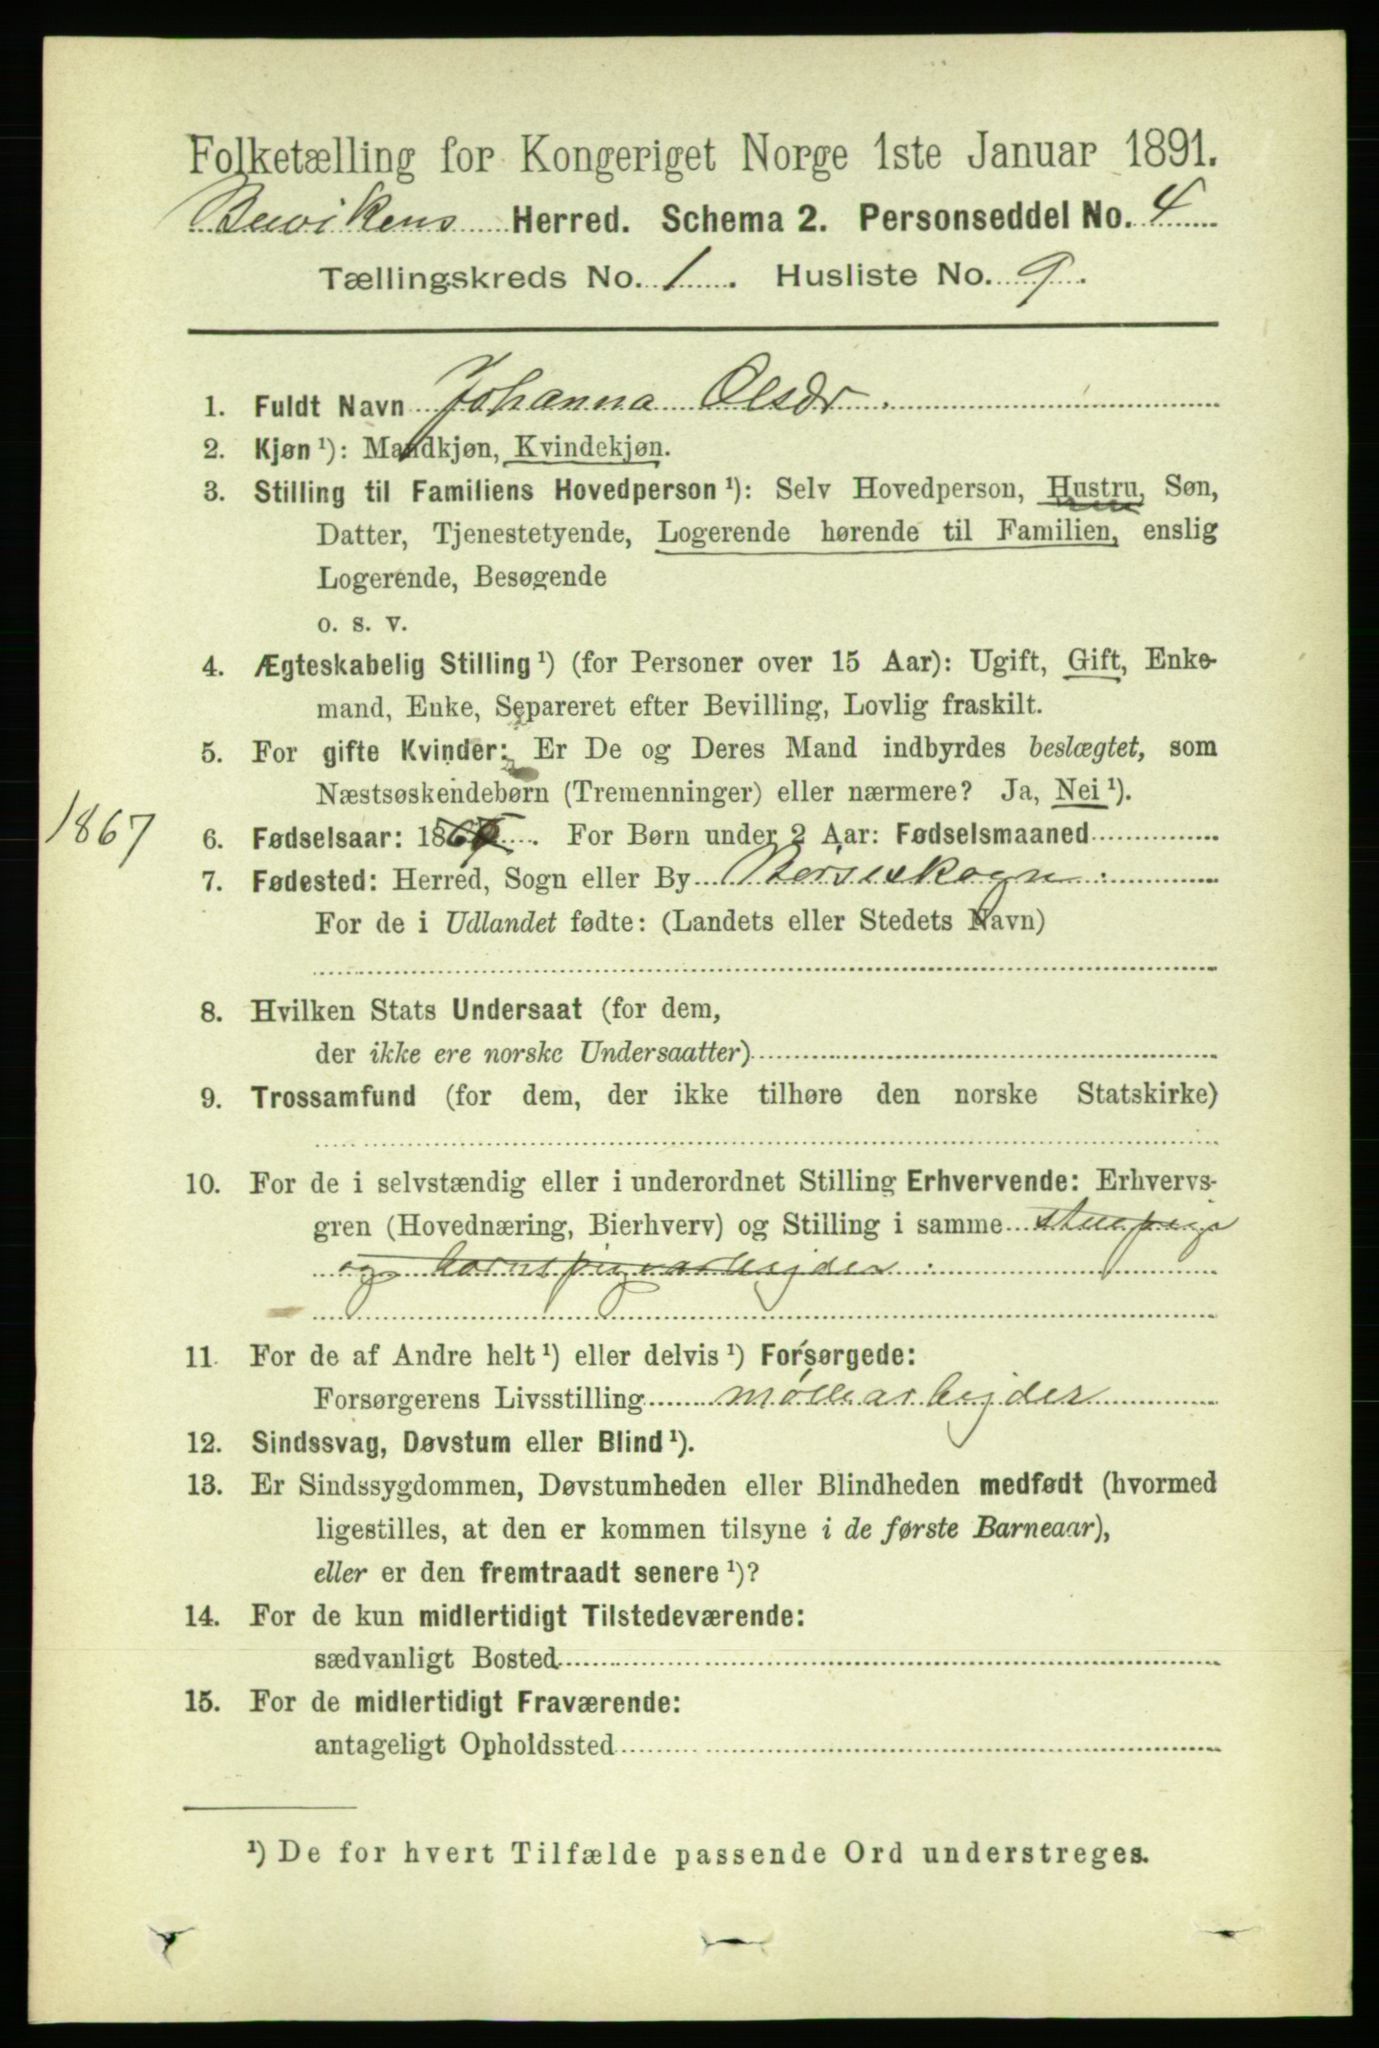 Folketælling for Kongeriget Norge 1ste Januar 1891.
Buvikens Herred. Schema 2. Personseddel No. 4
Tællingskreds No. 1. Husliste No. 9.
1. Fuldt Navn Johanna Olsdr.
2. Kjøn ¹): Mandkjøn, Kvindekjøn.
3. Stilling til Familiens Hovedperson ¹): Selv Hovedperson, Hustru, Søn,
Datter, Tjenestetyende, Logerende hørende til Familien, enslig
Logerende, Besøgende
o. s. v.
4. Ægteskabelig Stilling ¹) (for Personer over 15 Aar): Ugift, Gift, Enke-
mand, Enke, Separeret efter Bevilling, Lovlig fraskilt.
5. For gifte Kvinder: Er De og Deres Mand indbyrdes beslægtet, som
Næstsøskendebørn (Tremenninger) eller nærmere? Ja, Nei ¹).
1867
6. Fødselsaar: 186 . For Børn under 2 Aar: Fødselsmaaned
7. Fødested: Herred, Sogn eller By Børseskogn
For de i Udlandet fødte: (Landets eller Stedets Navn)
8. Hvilken Stats Undersaat (for dem,
der ikke ere norske Undersaatter)
9. Trossamfund (for dem, der ikke tilhøre den norske Statskirke)
10. For de i selvstændig eller i underordnet Stilling Erhvervende: Erhvervs-
gren (Hovednæring, Bierhverv) og Stilling i samme
og
11. For de af Andre helt ¹) eller delvis ¹) Forsørgede:
Forsørgerens Livsstilling møllearbejder
12. Sindssvag, Døvstum eller Blind ¹).
13. Er Sindssygdommen, Døvstumheden eller Blindheden medfødt (hvormed
ligestilles, at den er kommen tilsyne i de første Barneaar),
eller er den fremtraadt senere ¹)?
14. For de kun midlertidigt Tilstedeværende:
sædvanligt Bosted
15. For de midlertidigt Fraværende:
antageligt Opholdssted
¹) De for hvert Tilfælde passende Ord understreges.